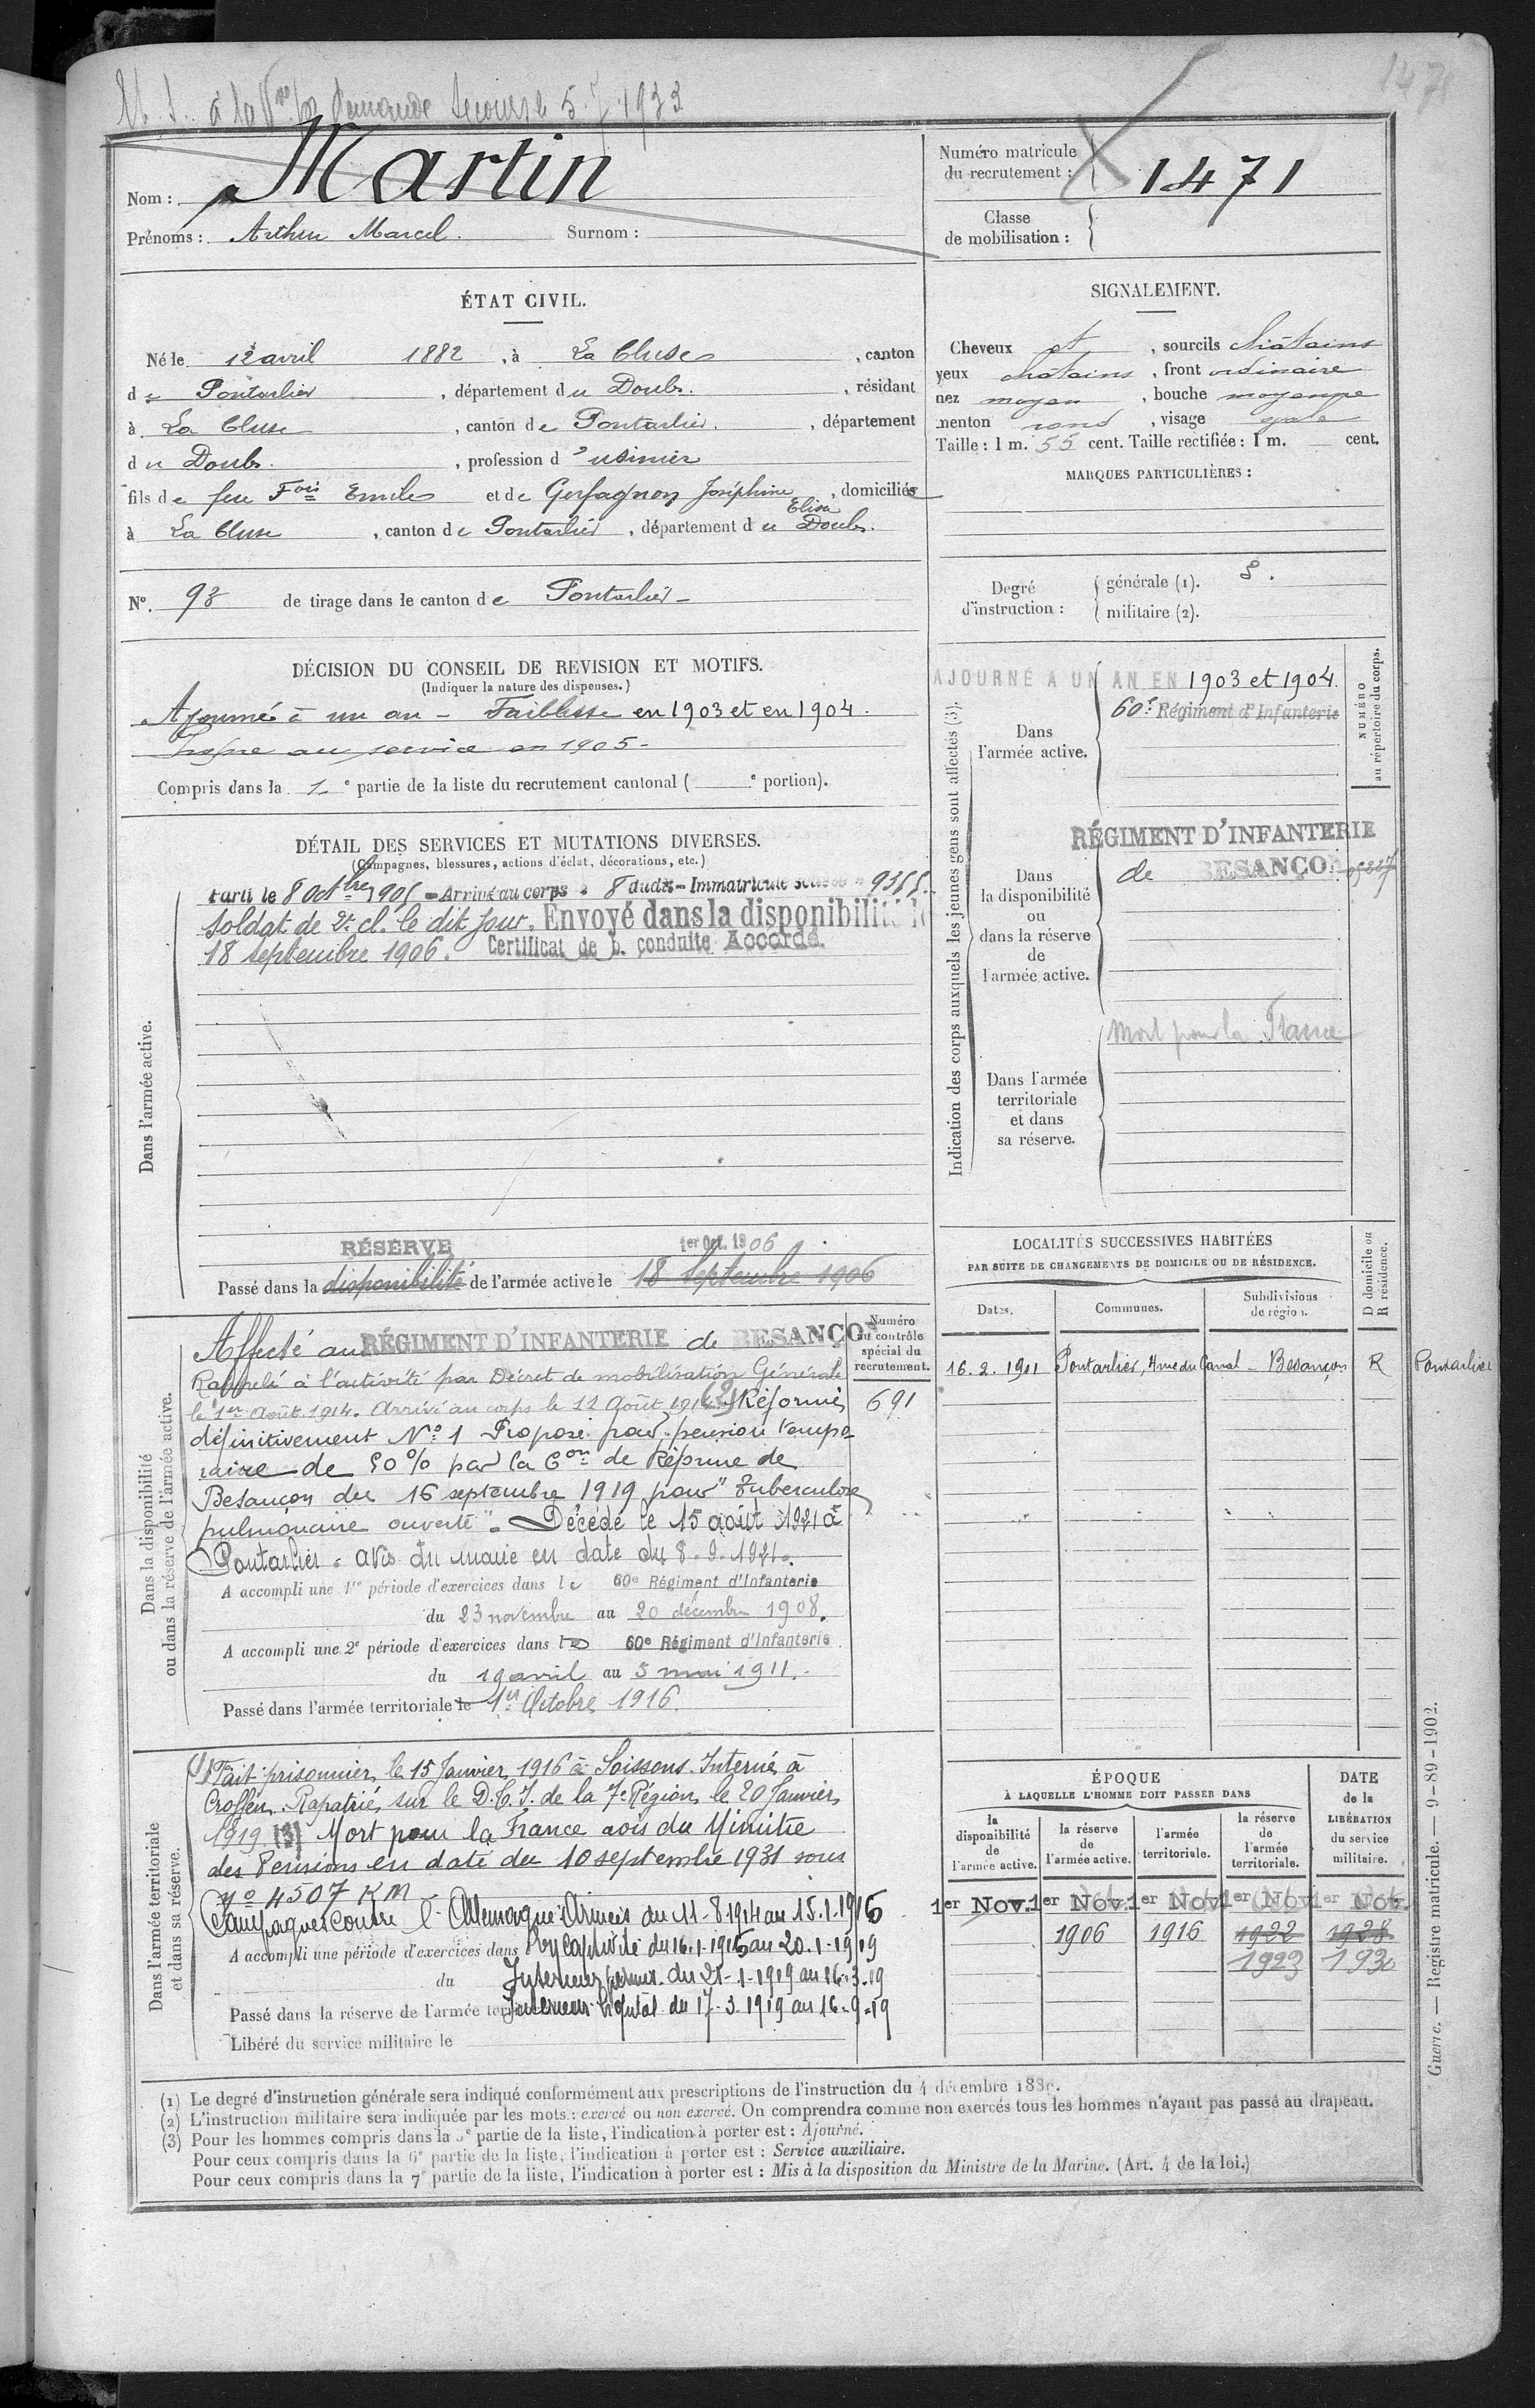 à la demande secours le 5.7.1933
1471
Nom : Martin
Prénoms : Arthur Marcel. Surnom :
Numéro matricule du recrutement : 1471
Classe de mobilisation :
ÉTAT CIVIL.
Né le 12 avril 1882, à La Cluse, canton
de Pontarlier, département du Doubs., résidant
à La Cluse, canton de Pontarlier., département
du Doubs., profession d'usinier
fils de feu Fois Emile et de Gerfagnon Joséphine Elisa, domiciliés
à La Cluse, canton de Pontarlier, département du Doubs.
N°. 98 de tirage dans le canton de Pontarlier -
SIGNALEMENT.
Cheveux et, sourcils châtains
yeux châtains, front ordinaire
nez moyen, bouche moyenne
menton rond, visage ovale
Taille : 1 m. 55 cent. Taille rectifiée : 1 m. cent.
MARQUES PARTICULIÈRES :
Degré d'instruction : générale (1). 3.
militaire (2).
DÉCISION DU CONSEIL DE REVISION ET MOTIFS.
(Indiquer la nature des dispenses.)
Ajourné à un an - Faiblesse en 1903 et en 1904.
Propre au service en 1905 -
Compris dans la 1e partie de la liste du recrutement cantonal ( e portion).
DÉTAIL DES SERVICES ET MUTATIONS DIVERSES.
(Campagnes, blessures, actions d'éclat, décorations, etc.)
Dans l'armée active.
Parti le 8 octbre 1905 - Arrivé au corps 8 dudit - Immatriculé 9365.
soldat de 2e cl. le dit jour. Envoyé dans la disponibilité le
18 septembre 1906. Certificat de b. conduite Accordé.
RÉSERVE 1er Oct. 1906
Passé dans la disponibilité de l'armée active le 18 Septembre 1906
Indication des corps auxquels les jeunes gens sont affectés (3).
NUMÉRO au répertoire du corps.
AJOURNÉ A UN AN EN 1903 et 1904.
60e Régiment d'Infanterie
Dans l'armée active.
RÉGIMENT D'INFANTERIE
de BESANÇON
Dans la disponibilité ou dans la réserve de l'armée active.
Mort pour la France
Dans l'armée territoriale et dans sa réserve.
Dans la disponibilité ou dans la réserve de l'armée active.
Numéro au contrôle spécial du recrutement.
691
Affecté au RÉGIMENT D'INFANTERIE de BESANÇON
Rappelé à l'activité par Décret de mobilisation Générale
le 1er Août 1914. Arrivé au corps le 12 Août 1914 (2) Réformé
définitivement N° 1 Proposé pour pension tempo-
raire de 50% par la Con de Réforme de
Besançon du 16 septembre 1919 pour "Tuberculose
pulmonaire ouverte". Décédé le 15 août 1921 à
Pontarlier. avis du maire en date du 8.9.1921.
A accompli une 1re période d'exercices dans le 60e Régiment d'Infanterie
du 23 novembre au 20 décembre 1908.
A accompli une 2e période d'exercices dans le 60e Régiment d'Infanterie
du 19 avril au 5 mai 1911.
Passé dans l'armée territoriale le 1er Octobre 1916.
LOCALITÉS SUCCESSIVES HABITÉES
PAR SUITE DE CHANGEMENTS DE DOMICILE OU DE RÉSIDENCE.
Dates. Communes. Subdivisions de région. D domicile ou R résidence.
16.2.1911 Pontarlier, 4 rue du Canal - Besançon R Pontarlier
Dans l'armée territoriale et dans sa réserve.
(1) Fait prisonnier le 15 Janvier 1916 à Soissons. Interné à
Crossen. Rapatrié sur le D.C.I. de la 7e Région le 20 Janvier
1919 (3) Mort pour la France avis du Ministre
des Pensions en date du 10 septembre 1931 sous
N° 4507 KM
Campagnes contre l'Allemagne: Armées du 11-8-1914 au 15.1.1916
A accompli une période d'exercices dans En captivité du 16.1.1916 au 20.1.1919
du Intérieur permis. du 21-1-1919 au 16.3.19
Passé dans la réserve de l'armée Intérieur hôpital du 17.3.1919 au 16-9-19
Libéré du service militaire le
ÉPOQUE
À LAQUELLE L'HOMME DOIT PASSER DANS
la disponibilité de l'armée active. la réserve de l'armée active. l'armée territoriale. la réserve de l'armée territoriale.
DATE de la LIBÉRATION du service militaire.
1er Nov. 1er Nov. 1er Nov. 1er Nov. 1er Nov.
1906 1916 1922 1928
1923 1930
(1) Le degré d'instruction générale sera indiqué conformément aux prescriptions de l'instruction du 4 décembre 1889.
(2) L'instruction militaire sera indiquée par les mots : exercé ou non exercé. On comprendra comme non exercés tous les hommes n'ayant pas passé au drapeau.
(3) Pour les hommes compris dans la 5e partie de la liste, l'indication à porter est : Ajourné.
Pour ceux compris dans la 6e partie de la liste, l'indication à porter est : Service auxiliaire.
Pour ceux compris dans la 7e partie de la liste, l'indication à porter est : Mis à la disposition du Ministre de la Marine. (Art. 4 de la loi.)
Guerre. — Registre matricule. — 9-89-1902.